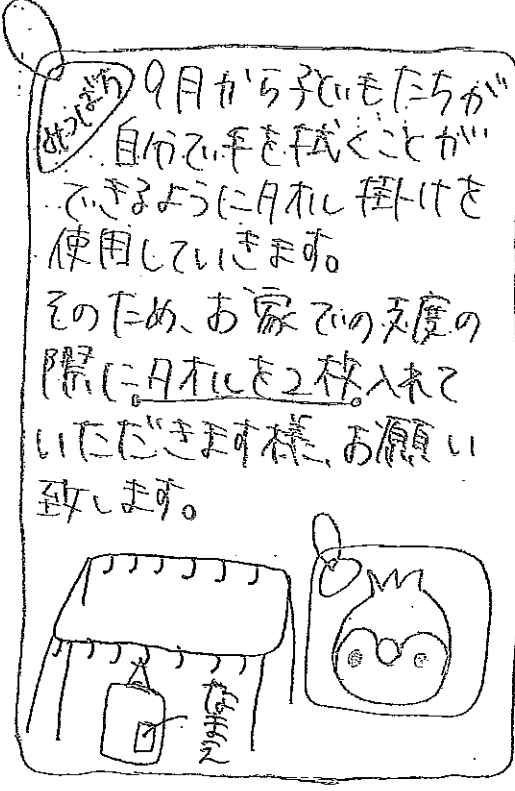 みつばち
9月から子どもたちが
自分で手を拭くことが
できるようにタオル掛けを
使用していきます。
そのため、お家での支度の
際にタオルを2枚入れて
いただきます様、お願い
致します。
なまえ